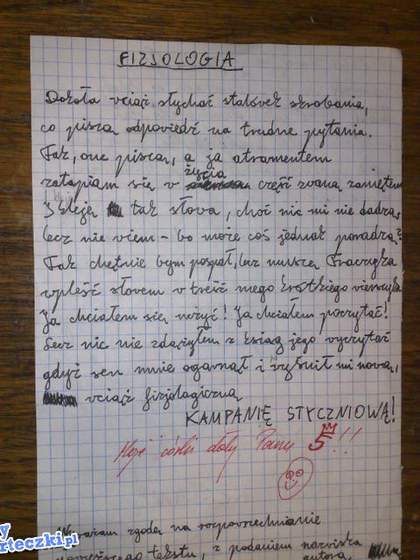 FIZJOLOGIA
Dokoła wciąż słychać stalówek skrobania,
co piszą odpowiedź na trudne pytania.
Tak, one piszą, a ja atramentem
życia
zatapiam się w część zwaną zamętem
I kleję tak słowa, choć nic mi nie dadzą,
lecz nie wiem - bo może coś jednak poradzą?
Tak chętnie bym pospał, lecz muszę Traczyka
wpleść słowem w treść mego krótkiego wierszyka
Ja chciałem się uczyć! Ja chciałem poczytać!
Lecz nic nie zdążyłem z ksiąg jego wyczytać
gdyż sen mnie ogarnął i wyśnił mi nową,
wciąż fizjologiczną
KAMPANIĘ STYCZNIOWĄ!
Moje córki dały Panu 5!!!
Wyrażam zgodę na rozpowszechnianie
tekstu, z podaniem nazwiska
autora,
rteczki.pl